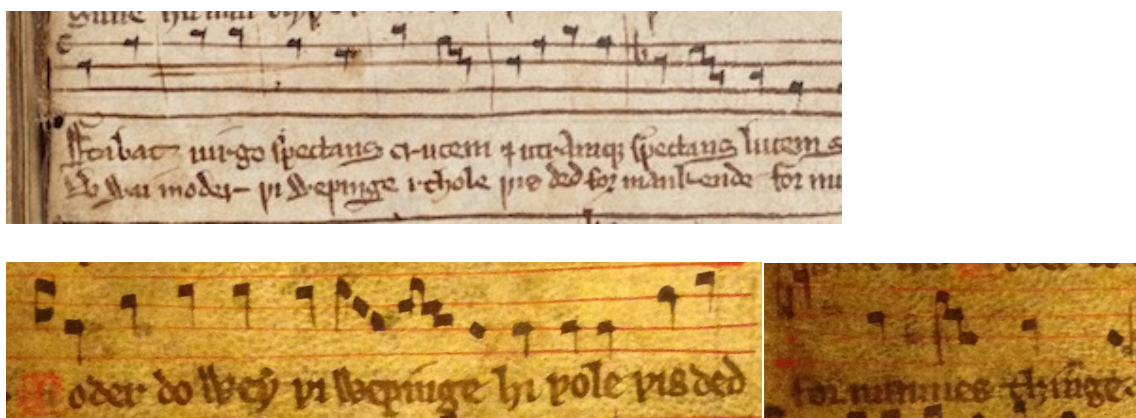 stabat uirgo spectans crucem ⁊ utramq; spectans lucem s
Do wai moder þi wepinge i thole þis ded for mankende for mi
oder do wey þi wepinge hi þole þis ded
for mannes thinge